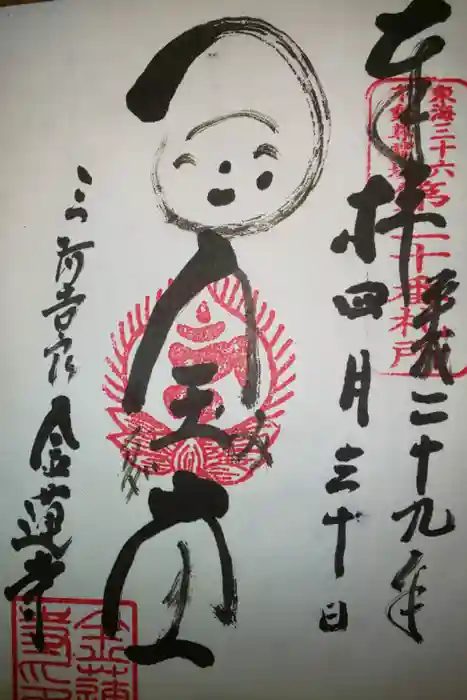 奉拝
平成二十九年
四月三十日
東海三十六
不動尊霊場
第二十番札所
三河吉良
金蓮寺